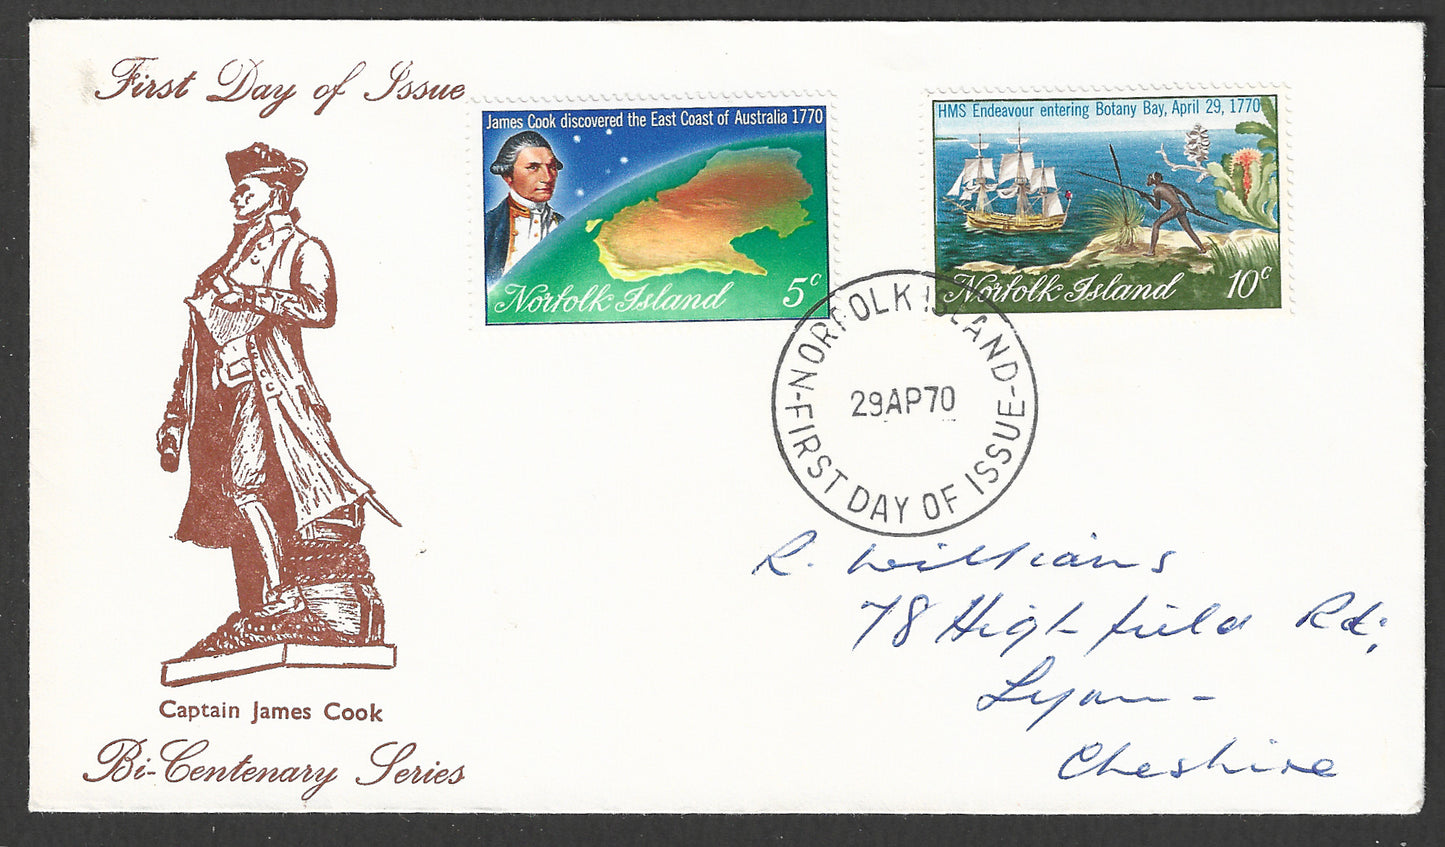 First Day of Issue
James Cook discovered the East Coast of Australia 1770
Norfolk Island 5c
HMS Endeavour entering Botany Bay, April 29, 1770
Norfolk Island 10c
NORFOLK ISLAND
29AP70
-FIRST DAY OF ISSUE-
R. Williams
78 Highfield Rd;
Lymm -
Cheshire
Captain James Cook
Bi-Centenary Series